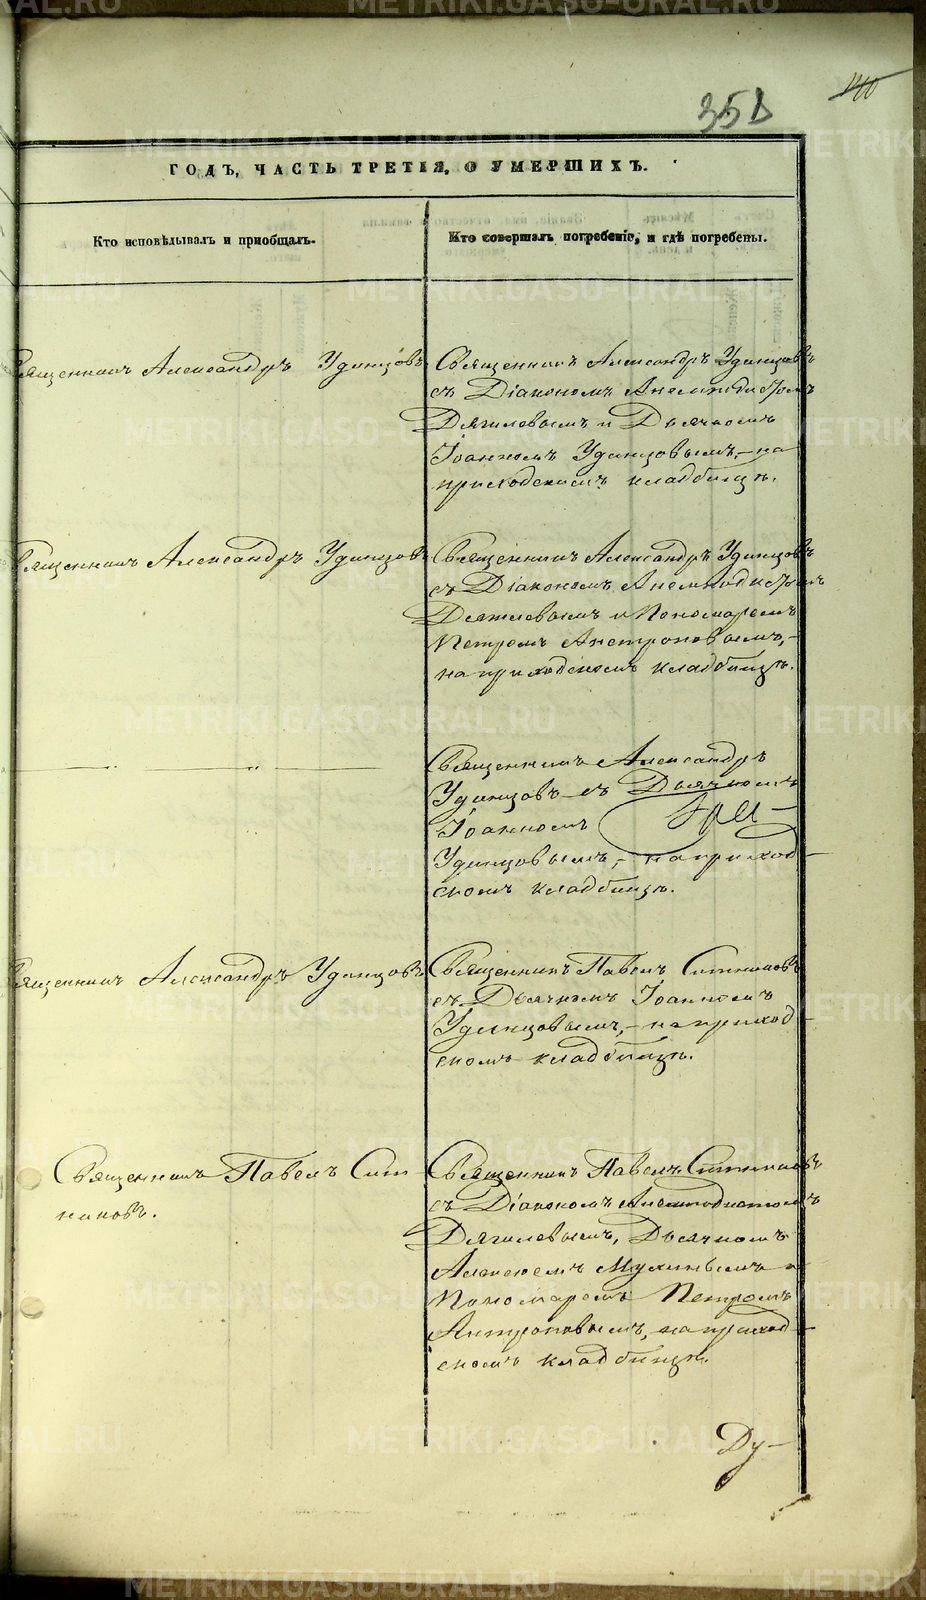 351
140
ГОДЪ, ЧАСТЬ ТРЕТІЯ, О УМЕРШИХЪ.
Кто исповѣдывалъ и приобщалъ.
Кто совершалъ погребеніе, и гдѣ погребены.
Священникъ Александръ Удинцовъ
Священникъ Александръ Удинцовъ
съ Діакономъ Анемподистомъ
Дягилевымъ и Дьячкомъ
Іоанномъ Удинцовымъ,- на
приходскомъ кладбищѣ.
Священникъ Александръ Удинцовъ
Священникъ Александръ Удинцовъ
съ Діакономъ Анемподистомъ
Дягилевымъ и Пономаремъ
Петромъ Антроповымъ,-
на приходскомъ кладбищѣ.
— „ — „ —
Священникъ Александръ
Удинцовъ съ Дьячкомъ
Іоанномъ
Удинцовымъ,- на приход-
скомъ кладбищѣ.
Священникъ Александръ Удинцовъ
Священникъ Павелъ Ситниковъ
съ Дьячкомъ Іоанномъ
Удинцовымъ,- на приход-
скомъ кладбищѣ.
Священникъ Павелъ Сит-
никовъ.
Священникъ Павелъ Ситниковъ
съ Діакономъ Анемподистомъ
Дягилевымъ, Дьячкомъ
Алексѣемъ Мухинымъ и
Пономаремъ Петромъ
Антроповымъ, на приход-
скомъ кладбищѣ.
Ду-
METRIKI.GASO-URAL.RU